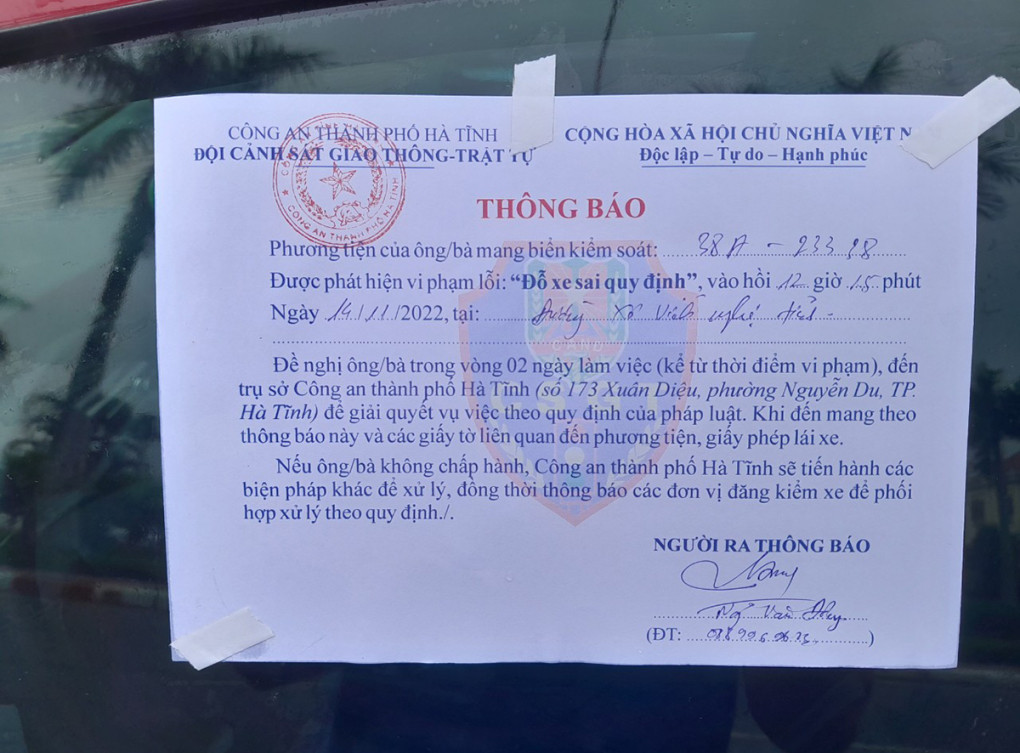 CÔNG AN THÀNH PHỐ HÀ TĨNH
ĐỘI CẢNH SÁT GIAO THÔNG-TRẬT TỰ
CỘNG HÒA XÃ HỘI CHỦ NGHĨA VIỆT N
Độc lập – Tự do – Hạnh phúc
CÔNG AN THÀNH PHỐ HÀ TĨNH
THÔNG BÁO
Phương tiện của ông/bà mang biển kiểm soát: 38A - 233
Được phát hiện vi phạm lỗi: “Đỗ xe sai quy định”, vào hồi 12 giờ 15 phút
Ngày 14/11/2022, tại: Đường Xô Viết nghệ tĩnh
CAND
CSGT
Đề nghị ông/bà trong vòng 02 ngày làm việc (kể từ thời điểm vi phạm), đến
trụ sở Công an thành phố Hà Tĩnh (số 173 Xuân Diệu, phường Nguyễn Du, TP.
Hà Tĩnh) để giải quyết vụ việc theo quy định của pháp luật. Khi đến mang theo
thông báo này và các giấy tờ liên quan đến phương tiện, giấy phép lái xe.
Nếu ông/bà không chấp hành, Công an thành phố Hà Tĩnh sẽ tiến hành các
biện pháp khác để xử lý, đồng thời thông báo các đơn vị đăng kiểm xe để phối
hợp xử lý theo quy định./.
NGƯỜI RA THÔNG BÁO
(ĐT: )